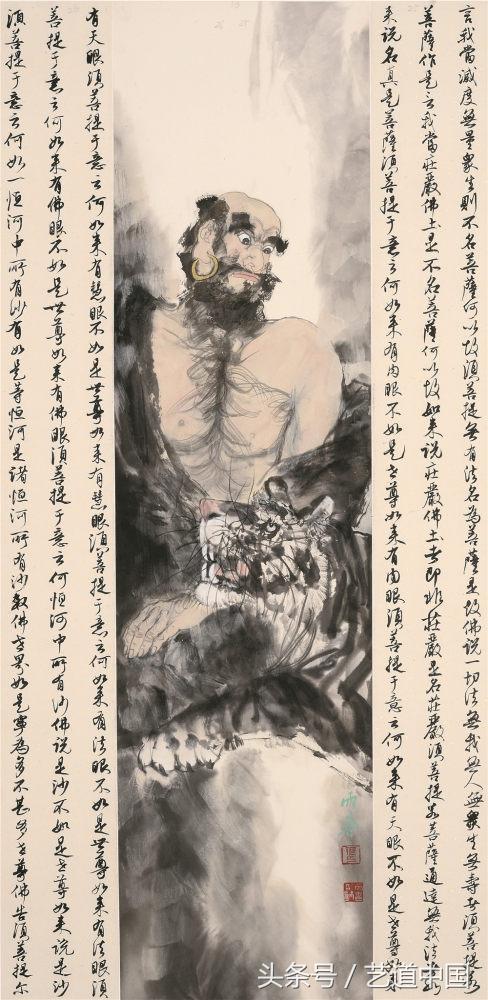 言我當滅度無量眾生則不名菩薩何以故須菩提無有法名為菩薩是故佛說一切法無我無人無眾生無壽者須菩提若
菩薩作是言我當莊嚴佛土是不名菩薩何以故如来說莊嚴佛土者即非莊嚴是名莊嚴須菩提若菩薩通達無我法者如
来說名真是菩薩須菩提于意云何如来有肉眼不如是世尊如来有肉眼須菩提于意云何如来有天眼不如是世尊如来
有天眼須菩提于意云何如来有慧眼不如是世尊如来有慧眼須菩提于意云何如来有法眼不如是世尊如来有法眼須
菩提于意云何如来有佛眼不如是世尊如来有佛眼須菩提于意云何恒河中所有沙佛說是沙不如是世尊如来說是沙
須菩提于意云何如一恒河中所有沙有如是等恒河是諸恒河所有沙數佛世界如是寧為多不甚多世尊佛告須菩提爾
头条号 / 艺道中国